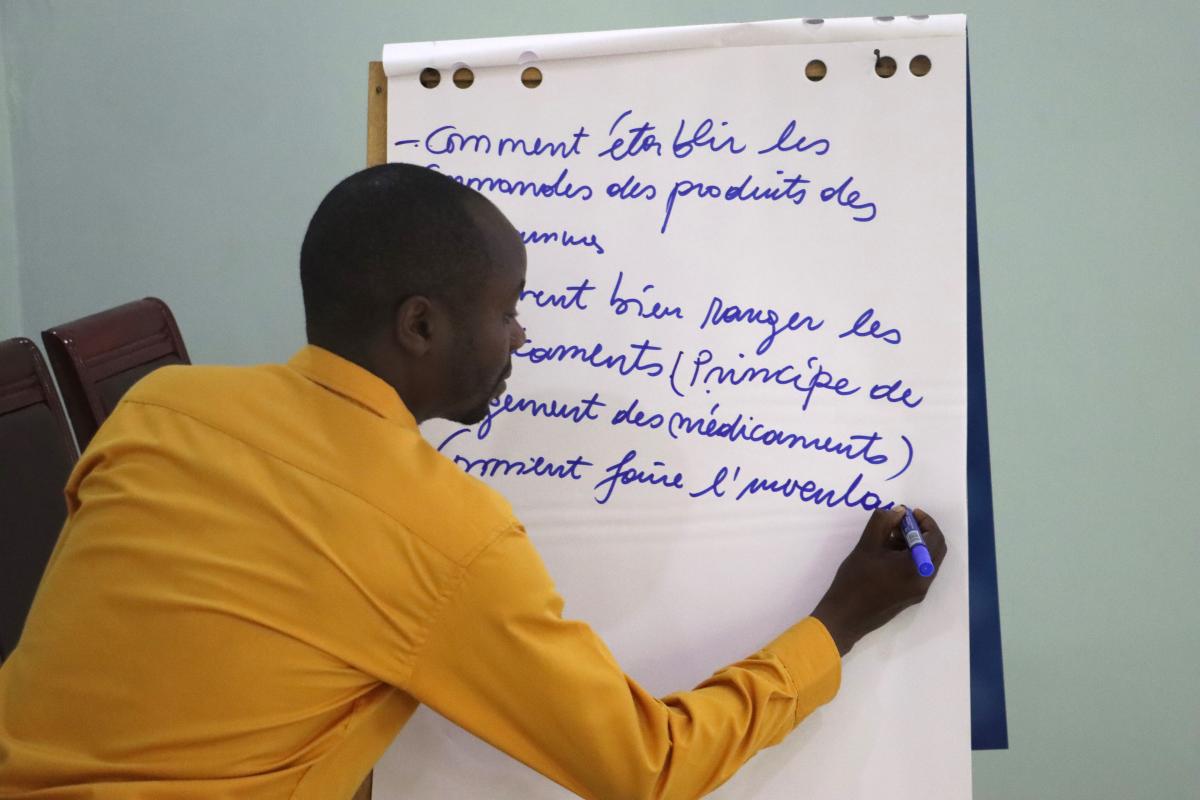 - Comment établir les
commandes des produits des
Comment bien ranger les
médicaments (Principe de
rangement des médicaments)
Comment faire l'inventai